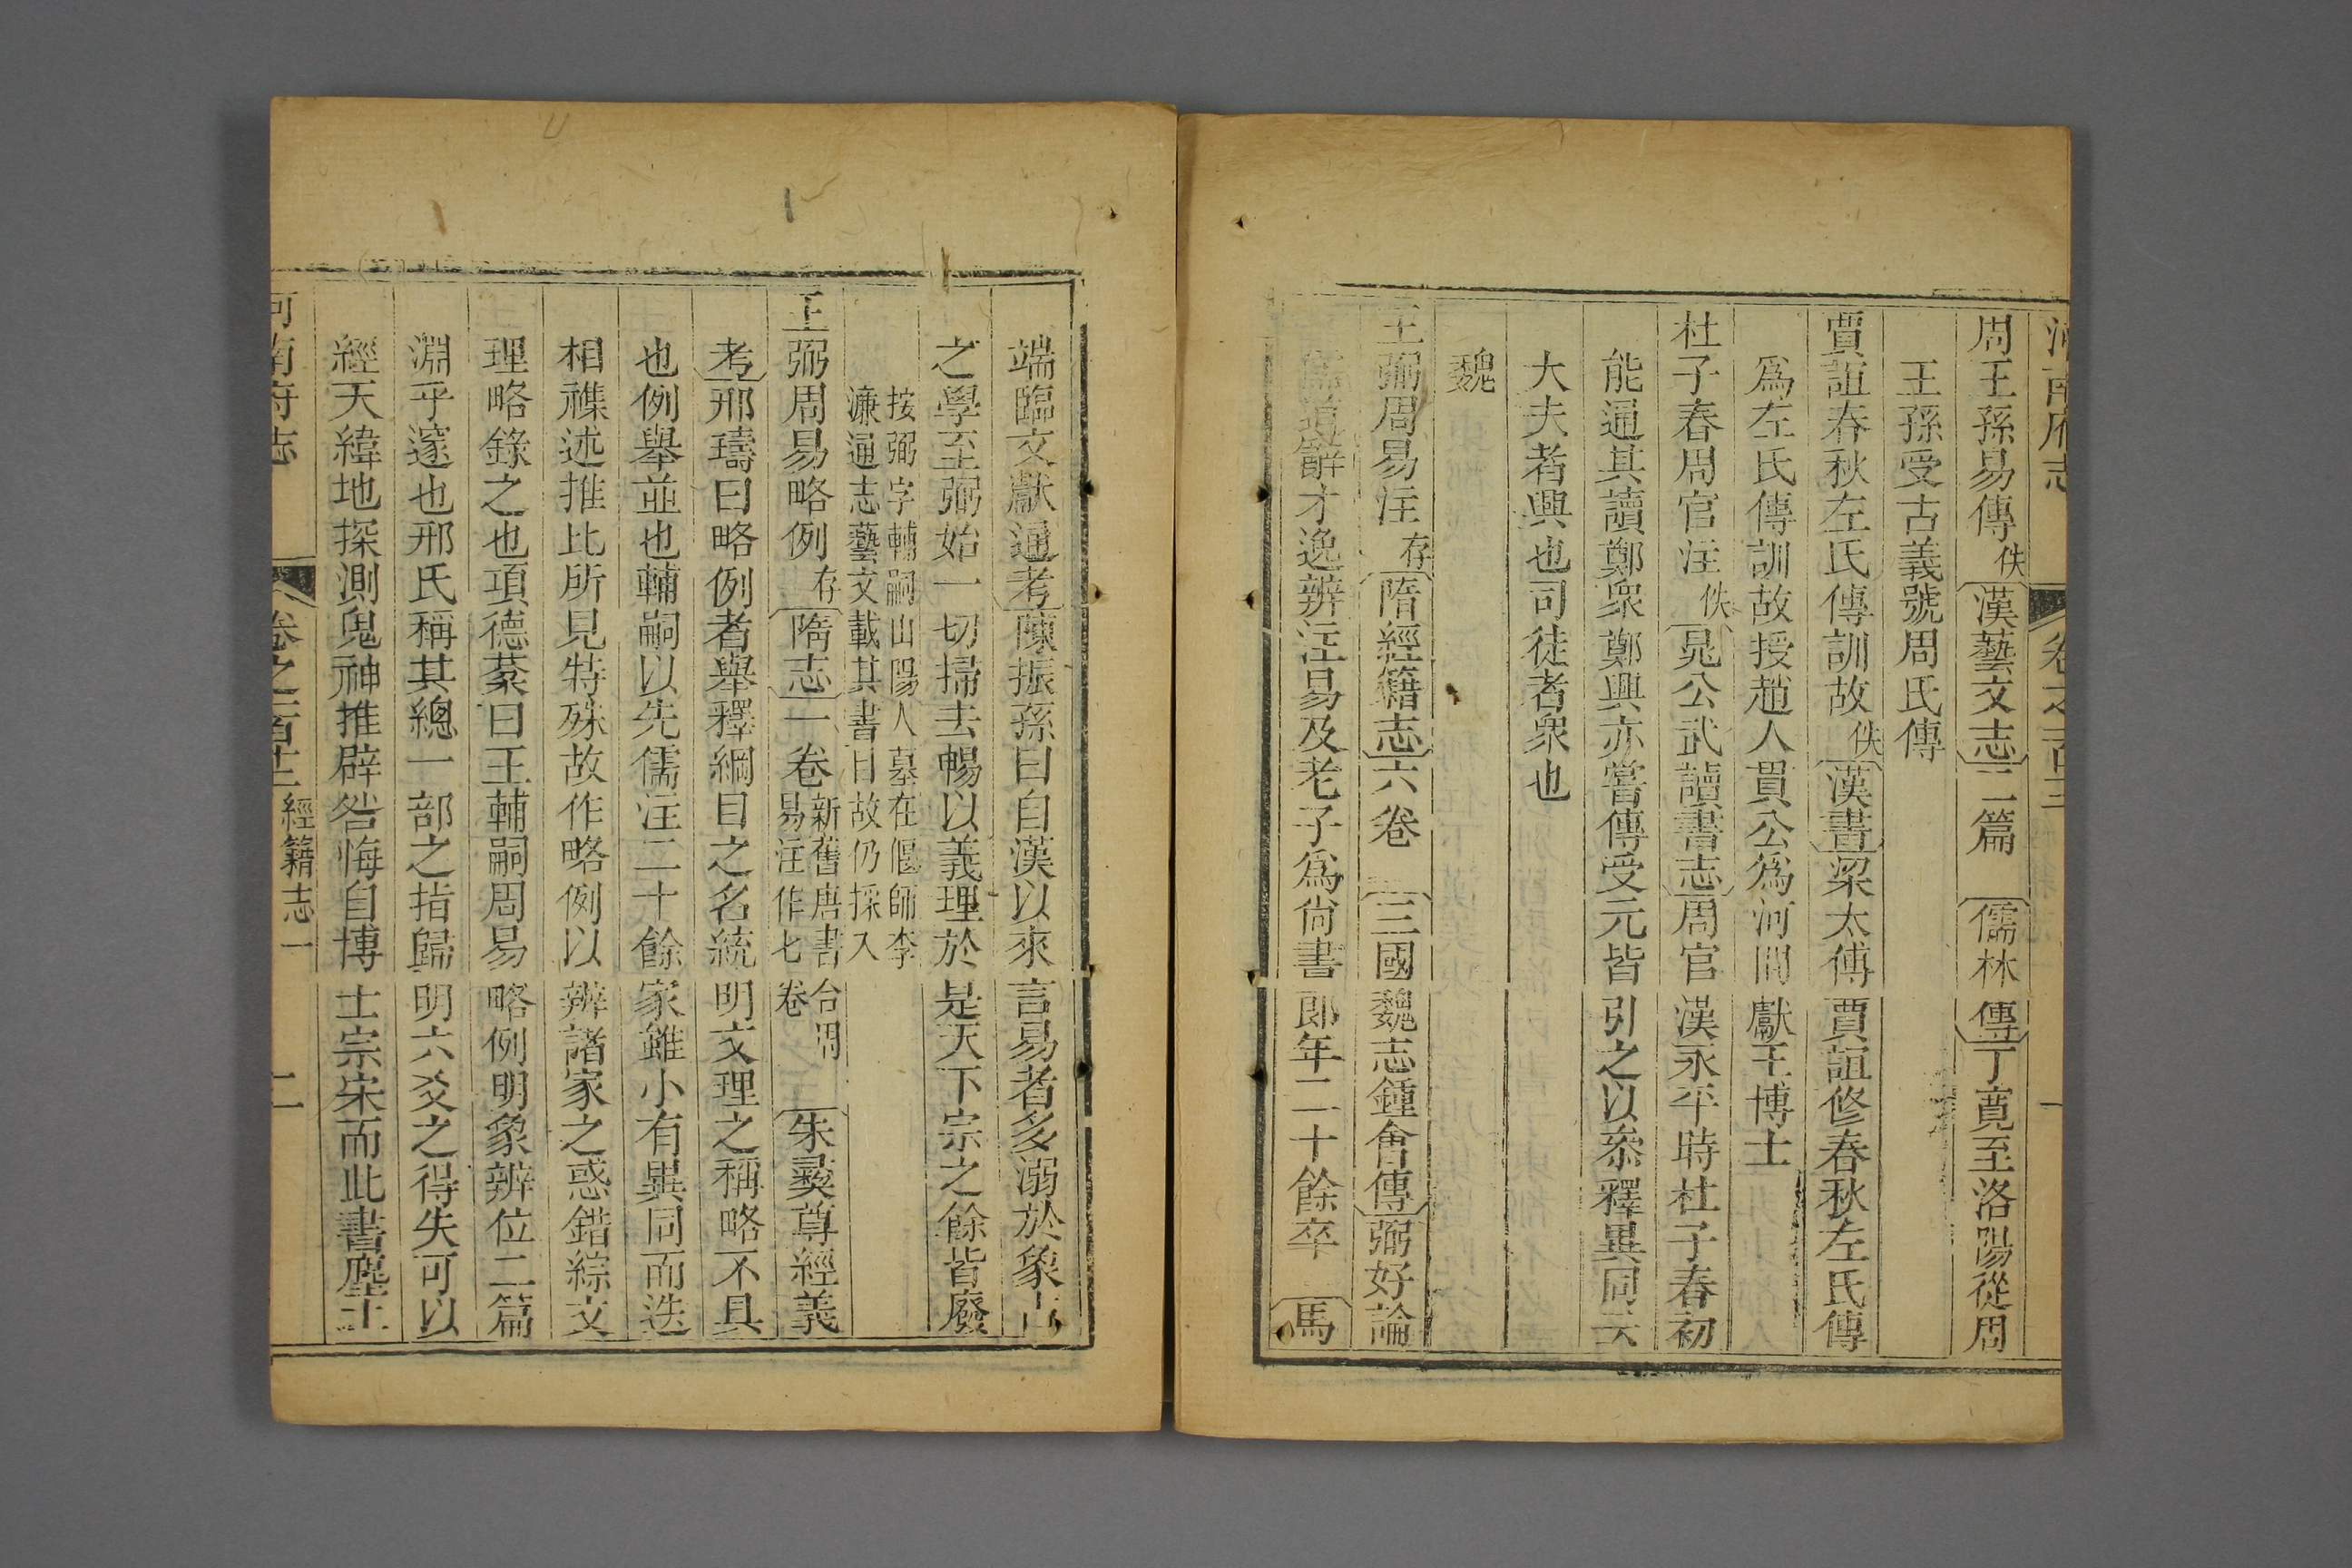 周王孫易傳佚漢藝文志二篇 儒林傳丁寬至洛陽從周
王孫受古義號周氏傳
賈誼春秋左氏傳訓故佚漢書梁太傅賈誼修春秋左氏傳
為左氏傳訓故授趙人貫公為河間獻王博士
杜子春周官注佚晁公武讀書志周官漢永平時杜子春初
能通其讀鄭衆鄭興亦嘗傳受元皆引之以叅釋異同云
大夫者興也司徒者衆也
魏
王弼周易注存隋經籍志六卷 三國魏志鍾會傳弼好論
儒道辭才逸辨注易及老子為尚書郎年二十餘卒 馬
端臨文獻通考陳振孫曰自漢以來言易者多溺於象占
之學至弼始一切掃去暢以義理於是天下宗之餘皆廢
按弼字輔嗣山陽人墓在偃師李
濂通志藝文載其書目故仍採入
王弼周易略例存隋志一卷新舊唐書合周
易注作七卷 朱彝尊經義
考邢璹曰略例者舉釋綱目之名統明文理之稱略不具
也例舉並也輔嗣以先儒注二十餘家雖小有異同而迭
相襍述推比所見特殊故作略例以辨諸家之惑錯綜文
理略錄之也項德棻曰王輔嗣周易略例明象辨位二篇
淵乎邃也邢氏稱其總一部之指歸明六爻之得失可以
經天緯地探測鬼神推辟咎悔自博士宗宋而此書塵土
河南府志 卷之百 經籍志一 二